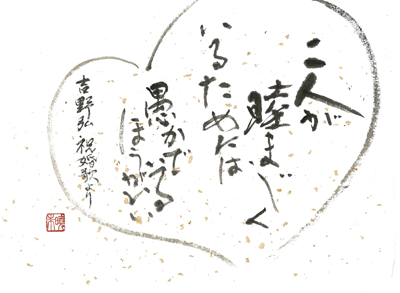 二人が
睦まじく
いるためには
愚かでいる
ほうがいい
吉野弘 祝婚歌より